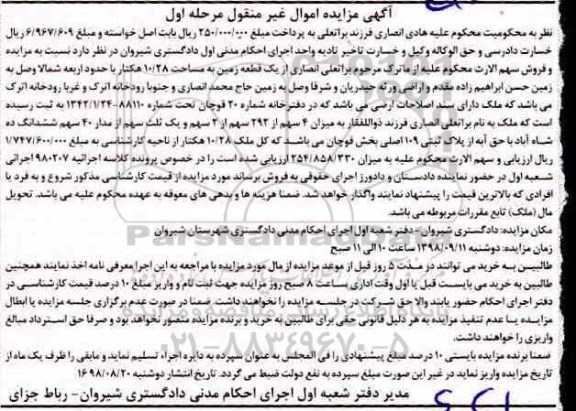 آگهی مزایده اموال غیر منقول مرحله اول
نظر به محکومیت محکوم علیه هادی انصاری فرزند براتعلی به پرداخت مبلغ ۲۵۰/۰۰۰/۰۰۰ ریال بابت اصل خواسته و مبلغ ۶/۹۶۷/۶۰۹ ریال
خسارت دادرسی و حق الوکاله وکیل و خسارت تاخیر تادیه واحد اجرای احکام مدنی اول دادگستری شیروان در نظر دارد نسبت به مزایده
و فروش سهم الارث محکوم علیه از ماترک مرحوم براتعلی انصاری از یک قطعه زمین به مساحت ۱۰/۲۸ هکتار با حدود اربعه شمالا وصل به
زمین حسن ابراهیم زاده مقدم و اراضی ورثه حیدریان و شرقا وصل به زمین حاج محمد انصاری و جنوبا رودخانه اترک و غربا رودخانه اترک
می باشد که ملک دارای سند اصلاحات ارضی می باشد که در دفترخانه شماره ۲۰ قوچان تحت شماره ۸۸۱۱۰-۱۳۴۲/۱/۲۴ به ثبت رسیده
است که ملک به نام براتعلی انصاری فرزند ذوالفقار به میزان ۴ سهم از ۲۹۲ سهم از ۲ سهم و یک ثلث سهم از مدار ۴۰ سهم ششدانگ ده
شاه آباد با حق آبه از پلاک ثبتی ۱۰۹ اصلی بخش قوچان می باشد که کل ملک ۱۰/۲۸ هکتار از ناحیه کارشناسی به مبلغ ۱/۷۴۷/۶۰۰/۰۰۰
ریال ارزیابی و سهم الارث محکوم علیه به میزان ۲۵۴/۸۵۸/۳۳۰ ارزیابی شده است را در خصوص پرونده کلاسه اجرائیه ۹۸۰۲۰۷ اجرائی
شعبه اول در حضور نماینده دادستان و دادورز اجرای حقوقی به فروش برساند مورد مزایده از قیمت کارشناسی مذکور شروع و به فرد یا
افرادی که بالاترین قیمت را پیشنهاد نمایند واگذار خواهد شد. ضمنا هزینه ها و بدهی های معوقه به عهده محکوم علیه می باشد. تحویل
مال (ملک) تابع مقررات مربوطه می باشد.
مکان مزایده: دادگستری شیروان - دفتر شعبه اول اجرای احکام مدنی دادگستری شهرستان شیروان
زمان مزایده: دوشنبه ۱۳۹۸/۰۹/۱۱ ساعت ۱۰ الی ۱۱ صبح
طالبین به خرید می توانند در مدت ۵ روز قبل از موعد مزایده از مال مورد مزایده با مراجعه به این اجرا معرفی نامه اخذ نمایند همچنین
طالبین به خرید می بایست قبل یا اول وقت اداری ساعت ۸ صبح روز مزایده جهت ثبت نام و واریز مبلغ ۱۰ درصد قیمت کارشناسی در
دفتر اجرای احکام حضور یابند والا حق شرکت در جلسه مزایده را نخواهند داشت. ضمنا در صورت عدم برگزاری جلسه مزایده یا ابطال
مزایده یا عدم تنفیذ مزایده به هر دلیل قانونی حقی برای طالبین به خرید و برنده مزایده متصور نخواهد بود و صرفا حق استرداد مبالغ
واریزی را خواهند داشت.
ضمنا برنده مزایده بایستی ۱۰ درصد مبلغ پیشنهادی را فی المجلس به عنوان سپرده به دایره اجراء تسلیم نماید و مابقی را ظرف یک ماه از
تاریخ مزایده واریز نماید در غیر این صورت مبلغ سپرده به نفع دولت ضبط می گردد. تاریخ انتشار دوشنبه ۹۸/۰۸/۲۰ ۱۶
مدیر دفتر شعبه اول اجرای احکام مدنی دادگستری شیروان- رباط جزای
ParsNamad
۰۲۱-۸۸۳۴۹۶۷۰-۵